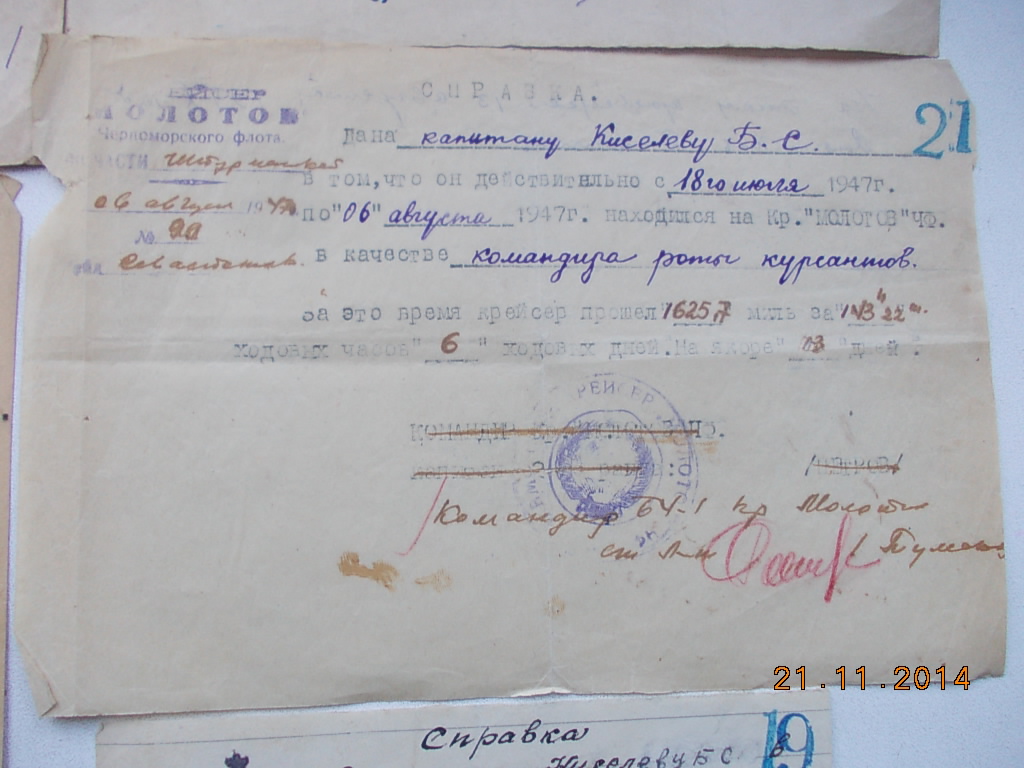 КРЕЙСЕР
МОЛОТОВ
Черноморского флота.
ЧАСТИ Штурманской
06 август 1947
№
гор. Севастополь
СПРАВКА.
21
Дана капитану Киселеву Б.С.
в том, что он действительно с 18го июля 1947г.
по "06" августа 1947г. находился на Кр. "МОЛОТОВ" ЧФ.
в качестве командира роты курсантов.
За это время крейсер прошел "1625,7" миль за
ходовых часов "6" ходовых дней. На якоре "13" дней".
КОМАНДИР КР. МОЛОТОВ ЧФ.
/ПЕТРОВ/
КРЕЙСЕР МОЛОТОВ
Командир БЧ-1 кр Молотов
ст л-т
21.11.2014
Справка
19
Киселеву Б С в